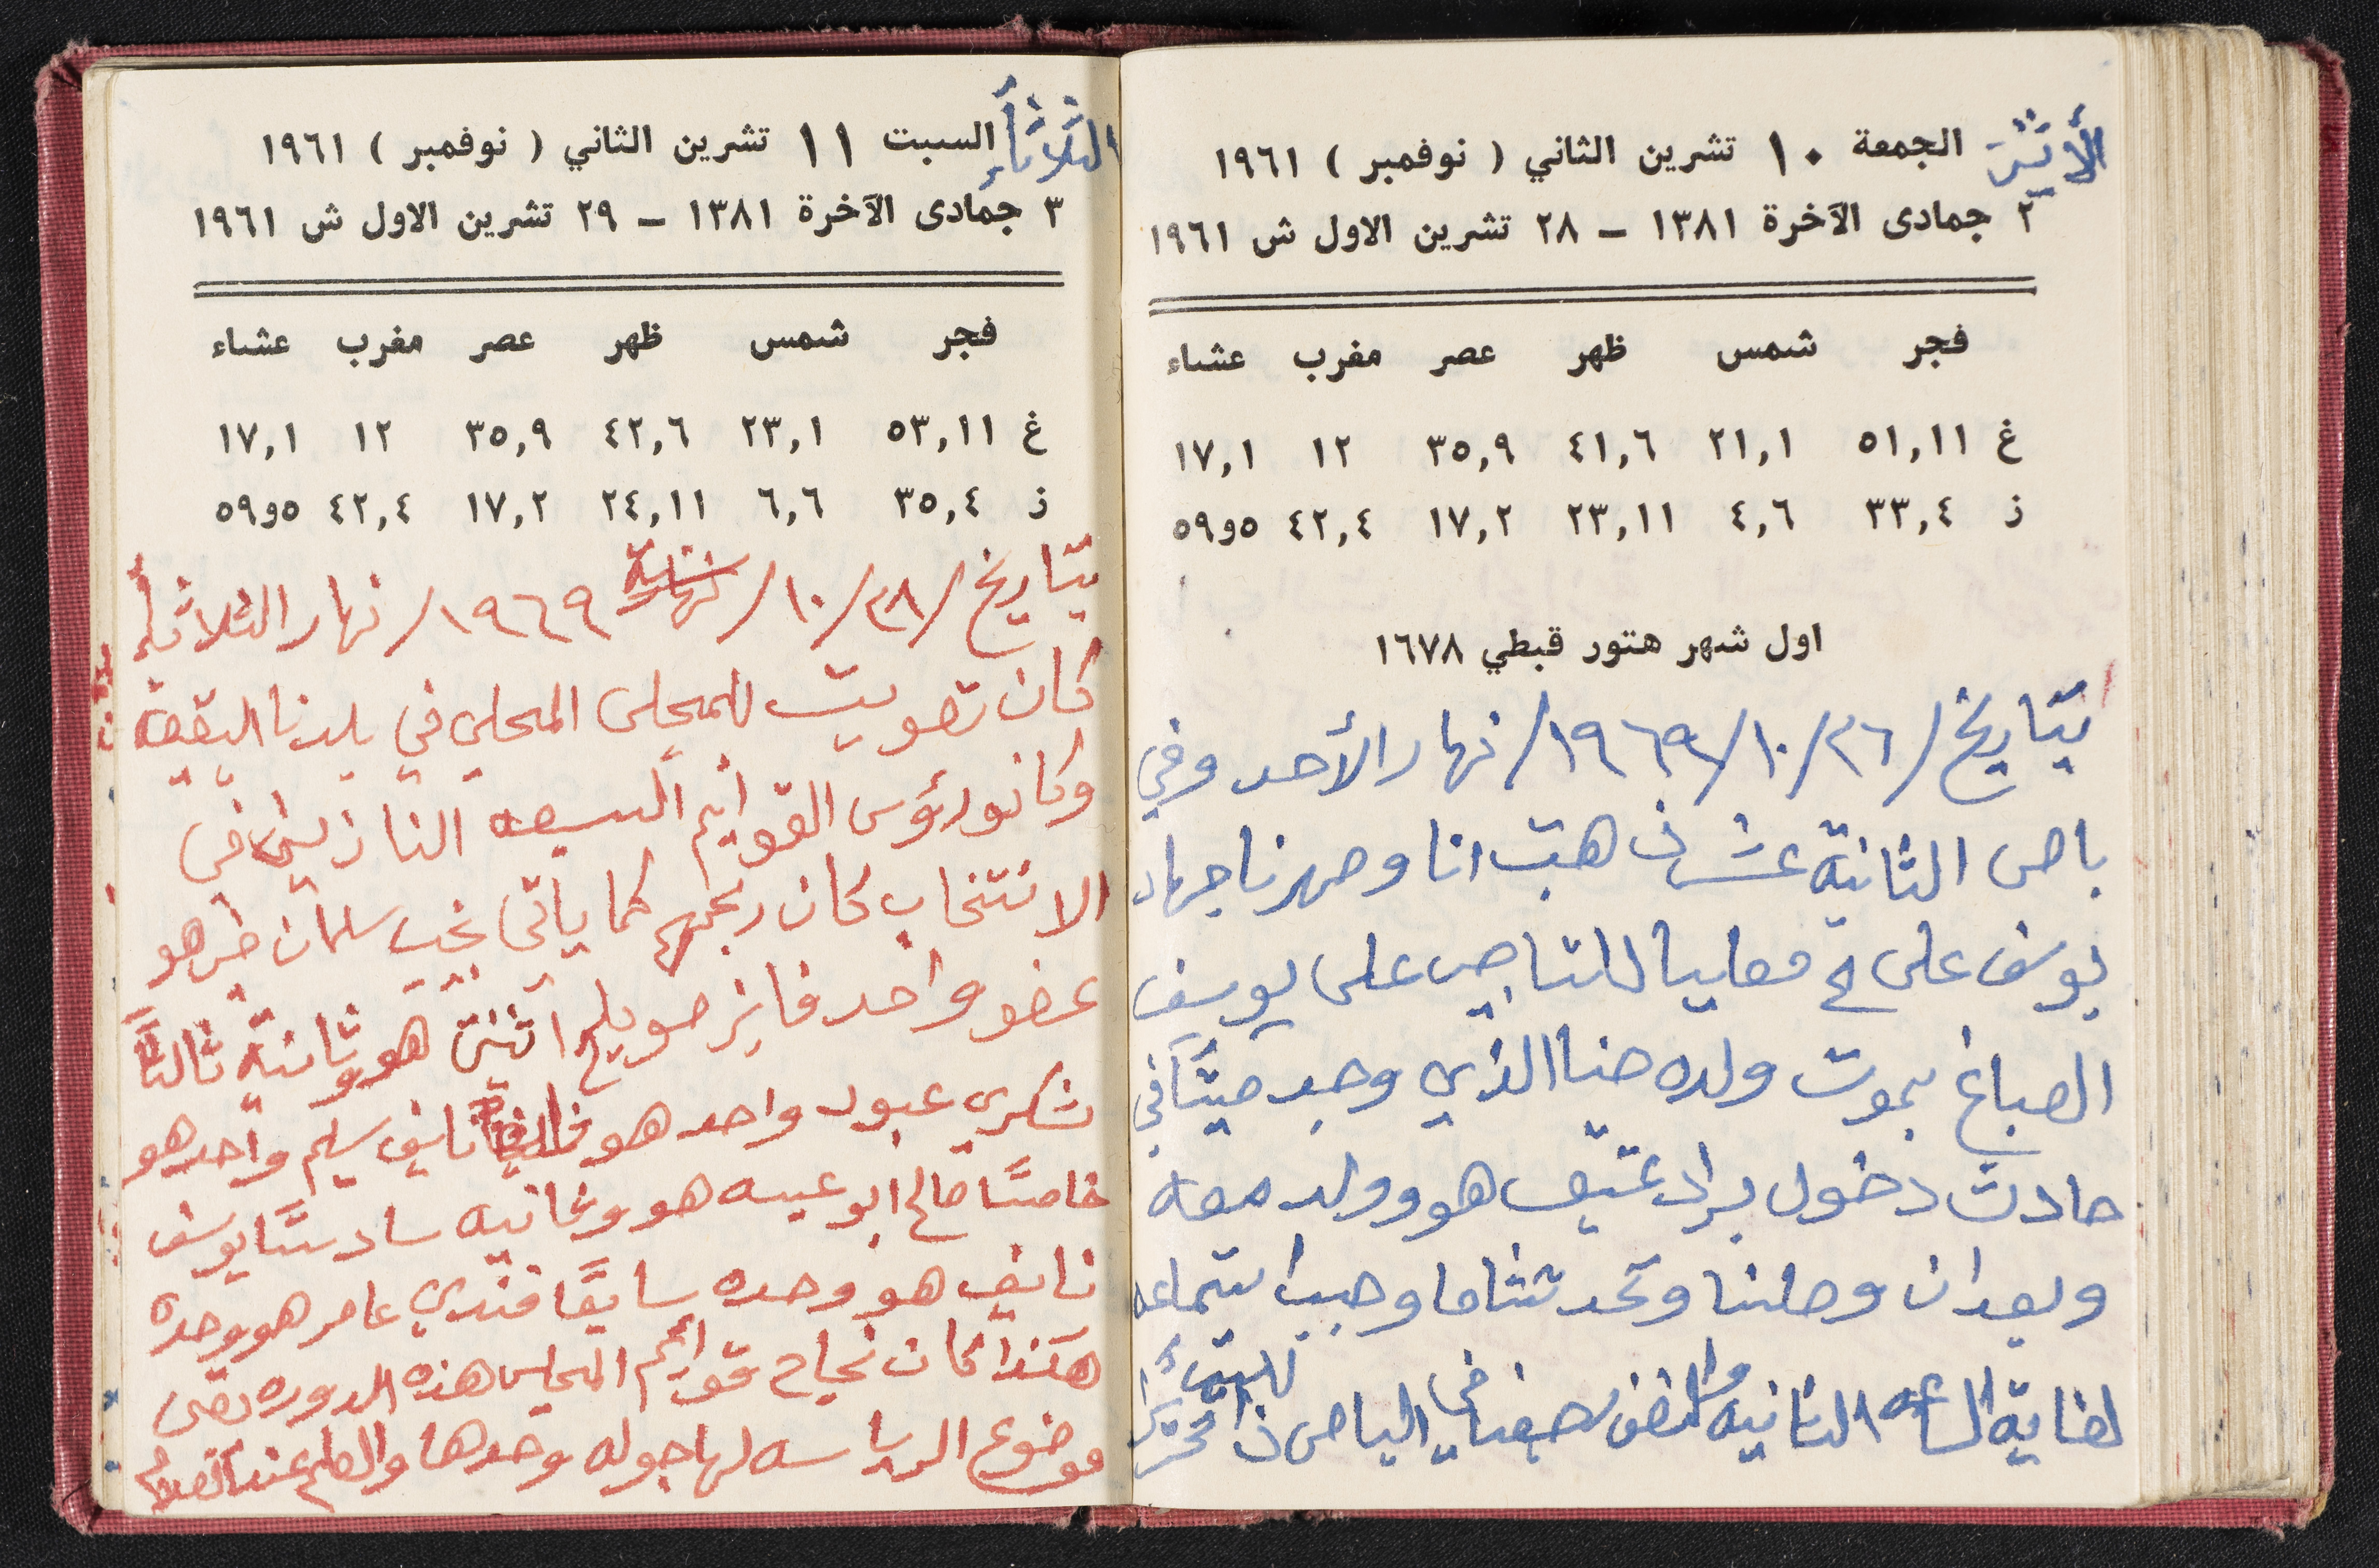 الأثنين
الجمعة ١٠ تشرين الثاني ( نوفمبر ) ١٩٦١
٢ جمادى الآخرة ١٣٨١ – ٢٨ تشرين الاول ش ١٩٦١
فجر شمس ظهر عصر مغرب عشاء
غ ٥١,١١ ٢١,١ ٤١,٦ ٣٥,٩ ١٢ ١٧,١
ز ٣٣,٤ ٤,٦ ٢٣,١١ ١٧,٢ ٤٢,٤ ٥و٥٩
اول شهر هتور قبطي ١٦٧٨
بتاريخ /٢٦/١٠/١٩٦٩/ نهار الأحد وفي
باص الثانية عشر ذهبت انا وصهرنا جهاد
يوسف علي معليا للتاجر على يوسف
الصباغ بموت ولده حنا الذي وجد ميتًا في
حادث دخول براد عتيق هو وولد معه
وبعد ان وصلنا وتحدثنا ما وجب استماعه
لغاية الساعه الثانيه والنصف في الباص
الثلاثاء
السبت ١١ تشرين الثاني ( نوفمبر ) ١٩٦١
٣ جمادى الآخرة ١٣٨١ – ٢٩ تشرين الاول ش ١٩٦١
فجر شمس ظهر عصر مغرب عشاء
غ ٥٣,١١ ٢٣,١ ٤٢,٦ ٣٥,٩ ١٢ ١٧,١
ز ٣٥,٤ ٦,٦ ٢٤,١١ ١٧,٢ ٤٢,٤ ٥و٥٩
بتاريخ /٢٨/١٠/ ١٩٦٩/ نهار الثلاثاء
كان تصويت للمجلس المحلي في بلدنا البقيعة
وكانو رؤس القوايم السبعه النازلين في
الانتخاب كان ربحهم كما يأتي نجيب سلمان خير هو
عضو واحد فايز صويلح اثنين هو وثانية ثالثًا
شكري عبود واحد هو نايف سليم واحد هو
خامسًا صالح ابو عيسه هو وثانيه سادسًا يوسف
نايف هو وحده سابعًا فندي عامر هو وحده
هكذا كان نجاح قوايم المجلس هذه الدوره بقى
موضوع الرياسه لها جوله وحدها والعلم عند